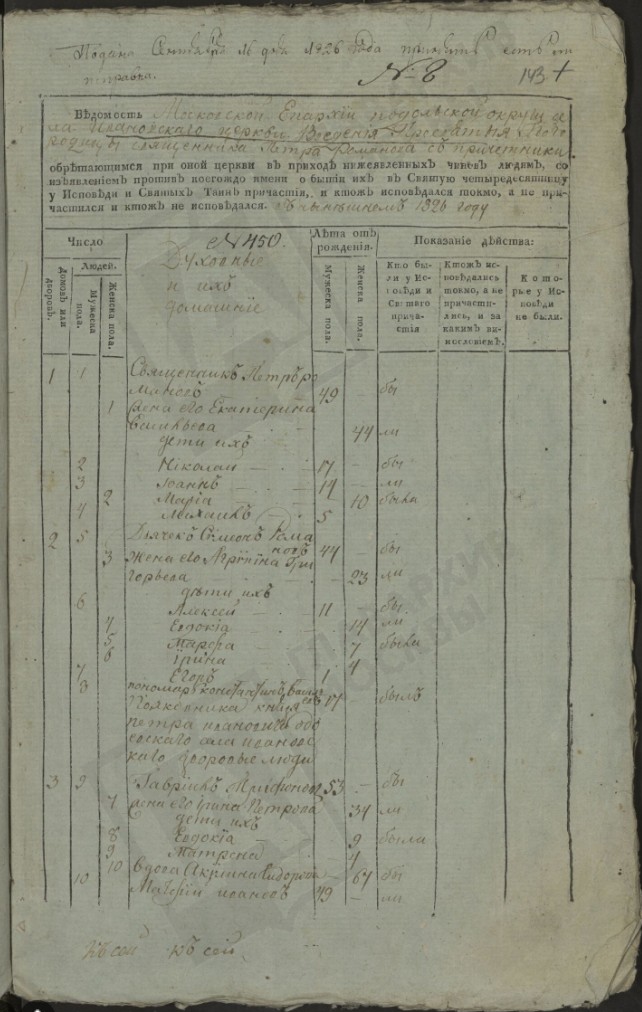 Подана Сентября 16 дня 1826 года
№ 8
143
Вѣдомость Московской Епархіи подольской округи се
ла Ивановскаго церкви Введенія Пресвятыя Бого
родицы священника Петра Романова съ причетники
обрѣтающимся при оной церкви въ приходѣ нижеявленныхъ чиновъ людямъ, со
изъявленіемъ противъ коегождо имени о бытіи ихъ въ Святую четыредесятницу
у Исповѣди и Святыхъ Таинъ причастія, и ктожъ исповѣдался токмо, а не при-
частился и ктожъ не исповѣдался. въ нынешнемъ 1826 году
Число
№ 450.
Лѣта отъ рожденія.
Показаніе дѣйства:
Домовъ или дворовъ.
Людей.
Мужеска пола.
Женска пола.
Духовные
и ихъ
домашніе
Мужеска пола.
Женска пола.
Кто бы-
ли у Ис-
повѣди и
Святаго
прича-
стія
Ктожъ ис-
повѣдались
токмо, а не
причасти-
лись, и за
какимъ ви-
нословіемъ.
Кото-
рые у Ис-
повѣди
не были.
1 1 Священникъ Петръ Ро
мановъ 49 — бы
1 Жена его Екатерина
Васильева 44 ли
дети ихъ
2 Николай 17 — бы
3 Іоаннъ 14 — ли
2 Марія 10 была
4 Михаилъ 5
2 5 Дьячекъ Симонъ Рома
новъ 44 — бы
3 Жена его Агрипина Гри
горьева 23 ли
дѣти ихъ
6 Алексей 11 — бы
4 Евдокіа 14 ли
5 Марфа 7 была
6 Ірина 4
7 Егоръ 1
пономарь Константинъ 17 былъ
Полковника князя
петра ивановича одо
евскаго села ивановс
каго дворовые люди
3 9 Гаврилъ 53 — бы
7 жена его ирина Петрова 34 ли
дети ихъ
8 Евдокіа 9 была
9 Матрена 4
10 вдова Акулина Сидорова 67 бы
10 ивановъ 49 — ли
Къ сей къ сей